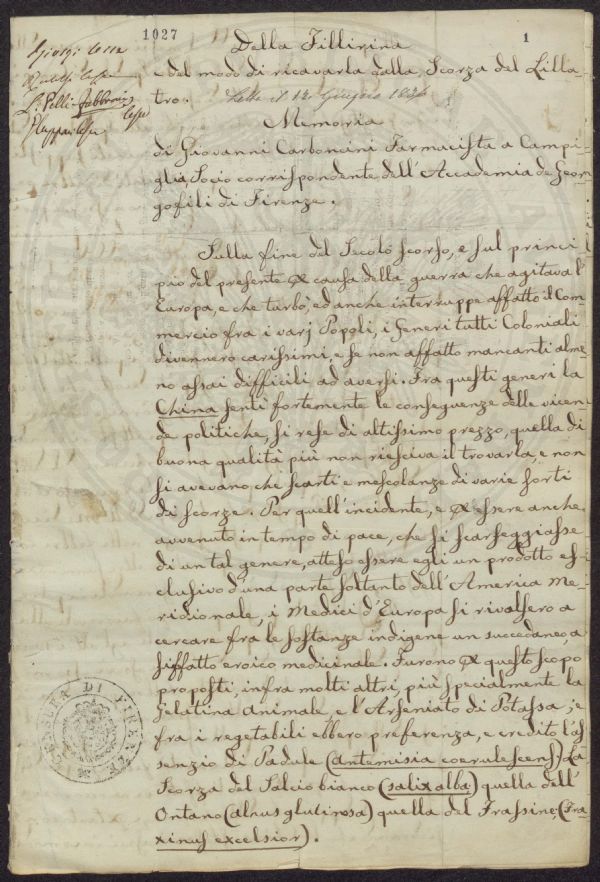 1027
1
Della Fillirina
e del modo di ricavarla dalla Scorza del Lilla
tro. Letta il 12 Giugno 1836
Memoria
di Giovanni Carboncini Farmacista a Campi
glia, Socio corrispondente dell'Accademia de Geor
gofili di Firenze.
Sulla fine del Secolo scorso, e sul princi
pio del presente a causa della guerra che agitava l'
Europa, e che turbò, ed anche interruppe affatto il Com
mercio fra i varj Popoli, i Generi tutti Coloniali
divennero carissimi, e se non affatto mancanti alme
no assai difficili ad aversi. Fra questi generi la
China sentì fortemente le conseguenze delle vicen
de politiche, si rese di altissimo prezzo, quella di
buona qualità più non riesciva il trovarla, e non
si avevano che scarti e mescolanze di varie sorti
di scorze. Per quell'incidente, e per essere anche
avvenuto in tempo di pace, che si scarseggiasse
di un tal genere, atteso essere egli un prodotto es
clusivo d'una parte soltanto dell'America Me
ridionale, i Medici d'Europa si rivolsero a
cercare fra le sostanze indigene un succedaneo, a
siffatto eroico medicinale. Furono per questo scopo
proposti, infra molti altri, più specialmente la
Gelatina animale, e l'Arseniato di Potassa; e
fra i vegetabili ebbero preferenza, e credito l'as
senzio di Padule (Artemisia coerulescens.) La
Scorza del Salcio bianco (salix alba.) quella dell'
Ontano (alnus glutinosa) quella del Frassino (Fra
xinus excelsior).
CENSURA DI FIRENZE